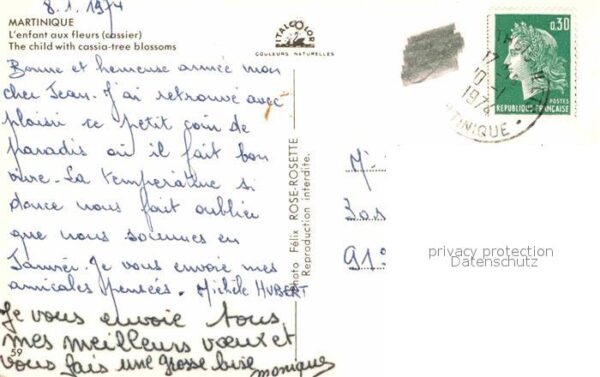 8.1.1974
MARTINIQUE
L'enfant aux fleurs (cassier)
The child with cassia-tree blossoms
ITALCOLOR
COULEURS NATURELLES
Bonne et heureuse année mon
cher Jean. J'ai retrouvé avec
plaisir ce petit coin de
paradis où il fait bon
vivre. La température si
douce nous fait oublier
que nous sommes en
Janvier. Je vous envoie mes
amicales pensées. Michèle HUBERT
Je vous envoie tous
mes meilleurs vœux et
vous fais une grosse bise
monique
59
Photo Félix ROSE-ROSETTE
Reproduction interdite.
0,30
POSTES
REPUBLIQUE FRANÇAISE
17 H
10-1
1974
TINIQUE
M
91
privacy protection
Datenschutz